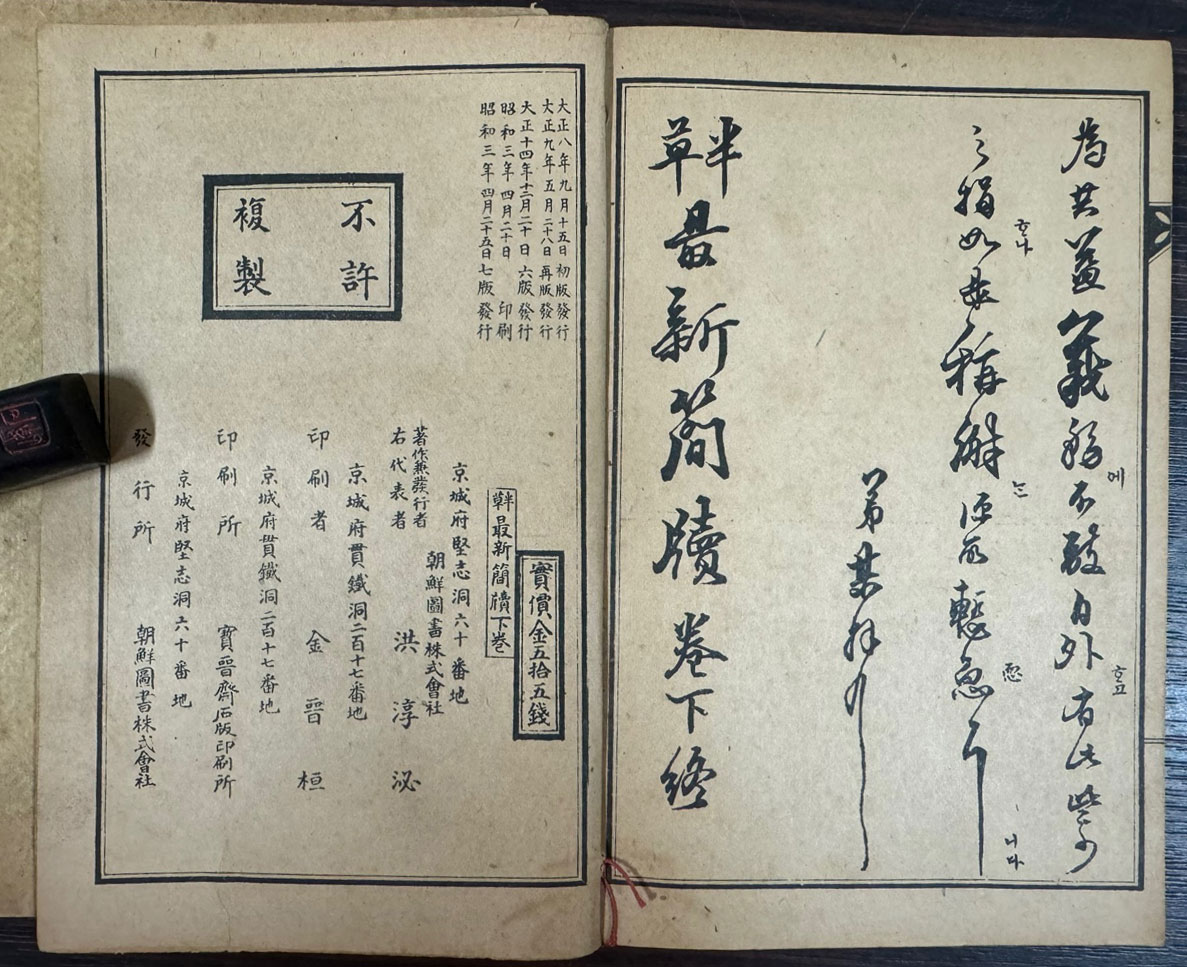 為共益義務에不敢自外호고有此些少
之捐호나如是稱謝는慙恧니다
弟某拜
半草最新簡牘卷下終
大正八年九月十五日初版發行
大正九年五月二十八日再版發行
大正十四年十二月二十日六版發行
昭和三年四月二十日印刷
昭和三年四月二十五日七版發行
不許
複製
實價金五拾五錢
半草最新簡牘下卷
京城府堅志洞六十番地
朝鮮圖書株式會社
著作兼發行者
右代表者 洪淳泌
京城府貫鐵洞二百十七番地
印刷者 金晉桓
京城府貫鐵洞二百十七番地
印刷所 寶晉齋石版印刷所
京城府堅志洞六十番地
發行所 朝鮮圖書株式會社